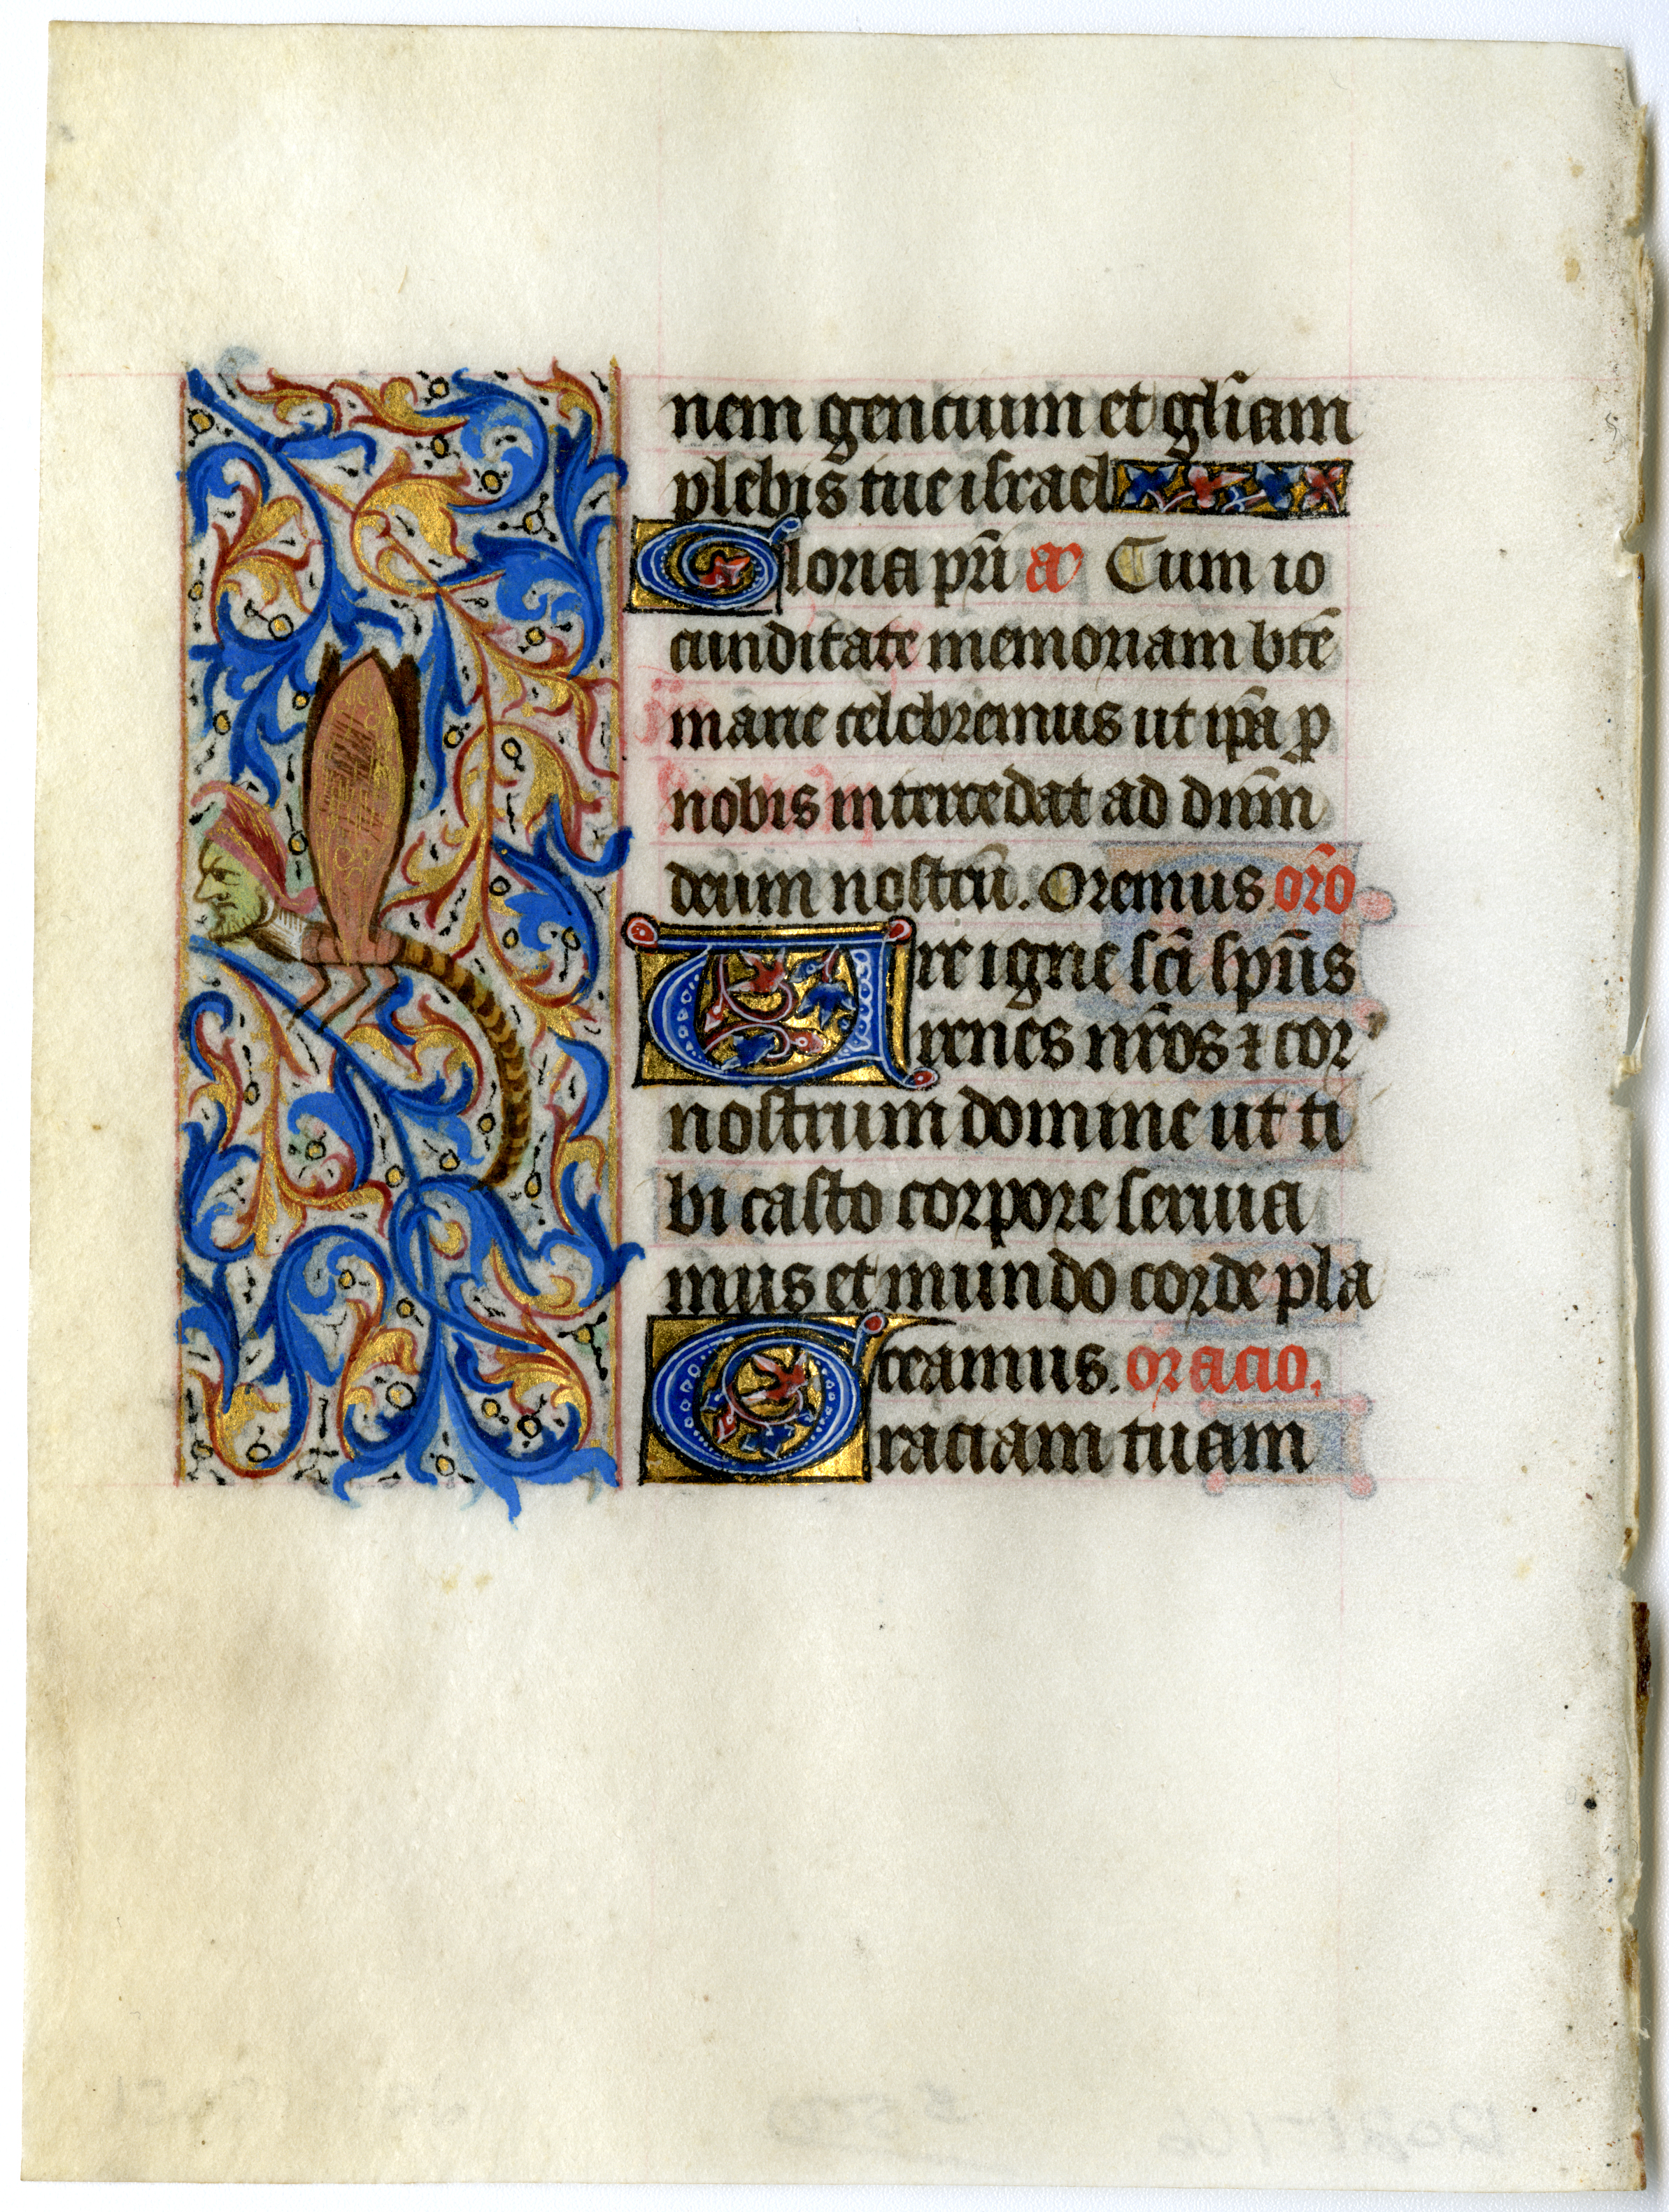 nem gencium et gl̃iam
plebis tue israel
Gloria pr̃i a᷒ Cum io
cunditate memoriam bt̃e
marie celebremus ut ip̃a ꝓ
nobis intercedat ad dñm
deum nostrũ. Oremus or̃o
Ure igne sc̃i sp̃us
renes nr̃os ⁊ cor
nostrum domine ut ti
bi casto corpore seruia
mus et mundo corde pla
ceamus. oracio.
Graciam tuam